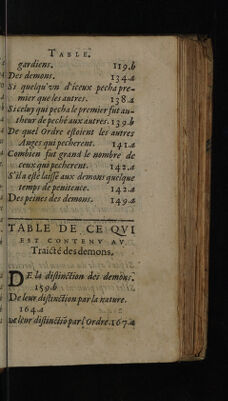 TABLE.
gardiens. 119.b
Des demons. 134.a
Si quelqu'vn d'iceux pecha pre-
mier que les autres. 138.a
Si celuy qui pecha le premier fut au-
theur de peché aux autres. 139.b
De quel Ordre estoient les autres
Anges qui pecherent. 141.a
Combien fut grand le nombre de
ceux qui pecherent. 142.a
S'il a esté laissé aux demons quelque
temps de penitence. 142.a
Des peines des demons. 149.a
TABLE DE CE QVI
EST CONTENV AV
Traicté des demons.
DE la distinction des demons.
159.b
De leur distinction par la nature.
164.a
De leur distinctiō par l'Ordre. 167.a